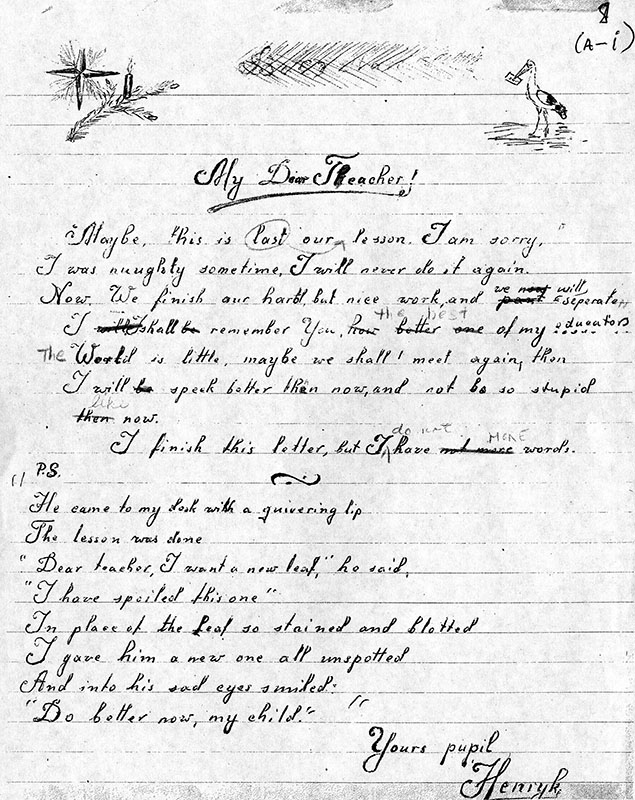 8
(A-i)
My Dear Teacher!
"Maybe, this is last our lesson. I am sorry."
I was nuughty sometime, I will never do it again.
Now, We finish our hard, but nice work, and we will seperate
I shall remember You, the best of my educators
The World is little, maybe we shall! meet again, then
I will speek better then now, and not be so stupid
like
then now.
I finish this letter, but I do not have MORE words.
P.S.
He came to my desk with a quivering lip
The lesson was done
"Dear teacher, I want a new leaf," he said,
"I have spoiled this one"
In place of the Leaf so stained and blotted
I gave him a new one all unspotted
And into his sad eyes smiled:
"Do better now, my child."
Yours pupil
Henryk